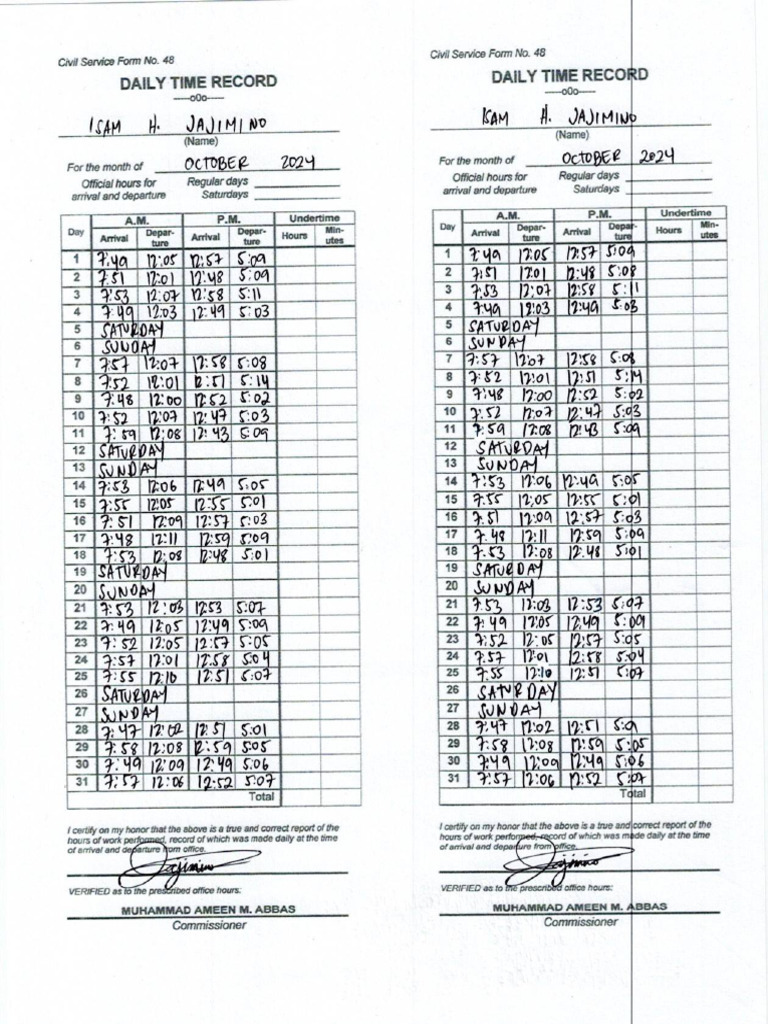 Civil Service Form No. 48
DAILY TIME RECORD
-----o0o-----
ISAM H. JAJIMINO
(Name)
For the month of OCTOBER 2024
Official hours for arrival and departure
Regular days
Saturdays
Day A.M. P.M. Undertime
Arrival Departure Arrival Departure Hours Minutes
1 7:49 12:05 12:57 5:09
2 7:51 12:01 12:48 5:09
3 7:53 12:07 12:58 5:11
4 7:49 12:03 12:49 5:03
5 SATURDAY
6 SUNDAY
7 7:57 12:07 12:58 5:08
8 7:52 12:01 12:51 5:14
9 7:48 12:00 12:52 5:02
10 7:52 12:07 12:47 5:03
11 7:59 12:08 12:43 5:09
12 SATURDAY
13 SUNDAY
14 7:53 12:06 12:49 5:05
15 7:55 12:05 12:55 5:01
16 7:51 12:09 12:57 5:03
17 7:48 12:11 12:59 5:09
18 7:53 12:08 12:48 5:01
19 SATURDAY
20 SUNDAY
21 7:53 12:03 12:53 5:07
22 7:49 12:05 12:49 5:09
23 7:52 12:05 12:57 5:05
24 7:57 12:01 12:58 5:04
25 7:55 12:10 12:51 5:07
26 SATURDAY
27 SUNDAY
28 7:47 12:02 12:51 5:01
29 7:58 12:08 12:59 5:05
30 7:49 12:09 12:49 5:06
31 7:57 12:06 12:52 5:07
Total
I certify on my honor that the above is a true and correct report of the
hours of work performed, record of which was made daily at the time
of arrival and departure from office.
Jajimino
VERIFIED as to the prescribed office hours:
MUHAMMAD AMEEN M. ABBAS
Commissioner
Civil Service Form No. 48
DAILY TIME RECORD
-----o0o-----
ISAM H. JAJIMINO
(Name)
For the month of OCTOBER 2024
Official hours for arrival and departure
Regular days
Saturdays
Day A.M. P.M. Undertime
Arrival Departure Arrival Departure Hours Minutes
1 7:49 12:05 12:57 5:09
2 7:51 12:01 12:48 5:08
3 7:53 12:07 12:58 5:11
4 7:49 12:03 12:49 5:03
5 SATURDAY
6 SUNDAY
7 7:57 12:07 12:58 5:08
8 7:52 12:01 12:51 5:14
9 7:48 12:00 12:52 5:02
10 7:52 12:07 12:47 5:03
11 7:59 12:08 12:43 5:09
12 SATURDAY
13 SUNDAY
14 7:53 12:06 12:49 5:05
15 7:55 12:05 12:55 5:01
16 7:51 12:09 12:57 5:03
17 7:48 12:11 12:59 5:09
18 7:53 12:08 12:48 5:01
19 SATURDAY
20 SUNDAY
21 7:53 12:03 12:53 5:07
22 7:49 12:05 12:49 5:09
23 7:52 12:05 12:57 5:05
24 7:57 12:01 12:58 5:04
25 7:55 12:10 12:51 5:07
26 SATURDAY
27 SUNDAY
28 7:47 12:02 12:51
29 7:58 12:08 12:59 5:05
30 7:49 12:09 12:49 5:06
31 7:57 12:06 12:52 5:07
Total
I certify on my honor that the above is a true and correct report of the
hours of work performed, record of which was made daily at the time
of arrival and departure from office.
Jajimino
VERIFIED as to the prescribed office hours:
MUHAMMAD AMEEN M. ABBAS
Commissioner